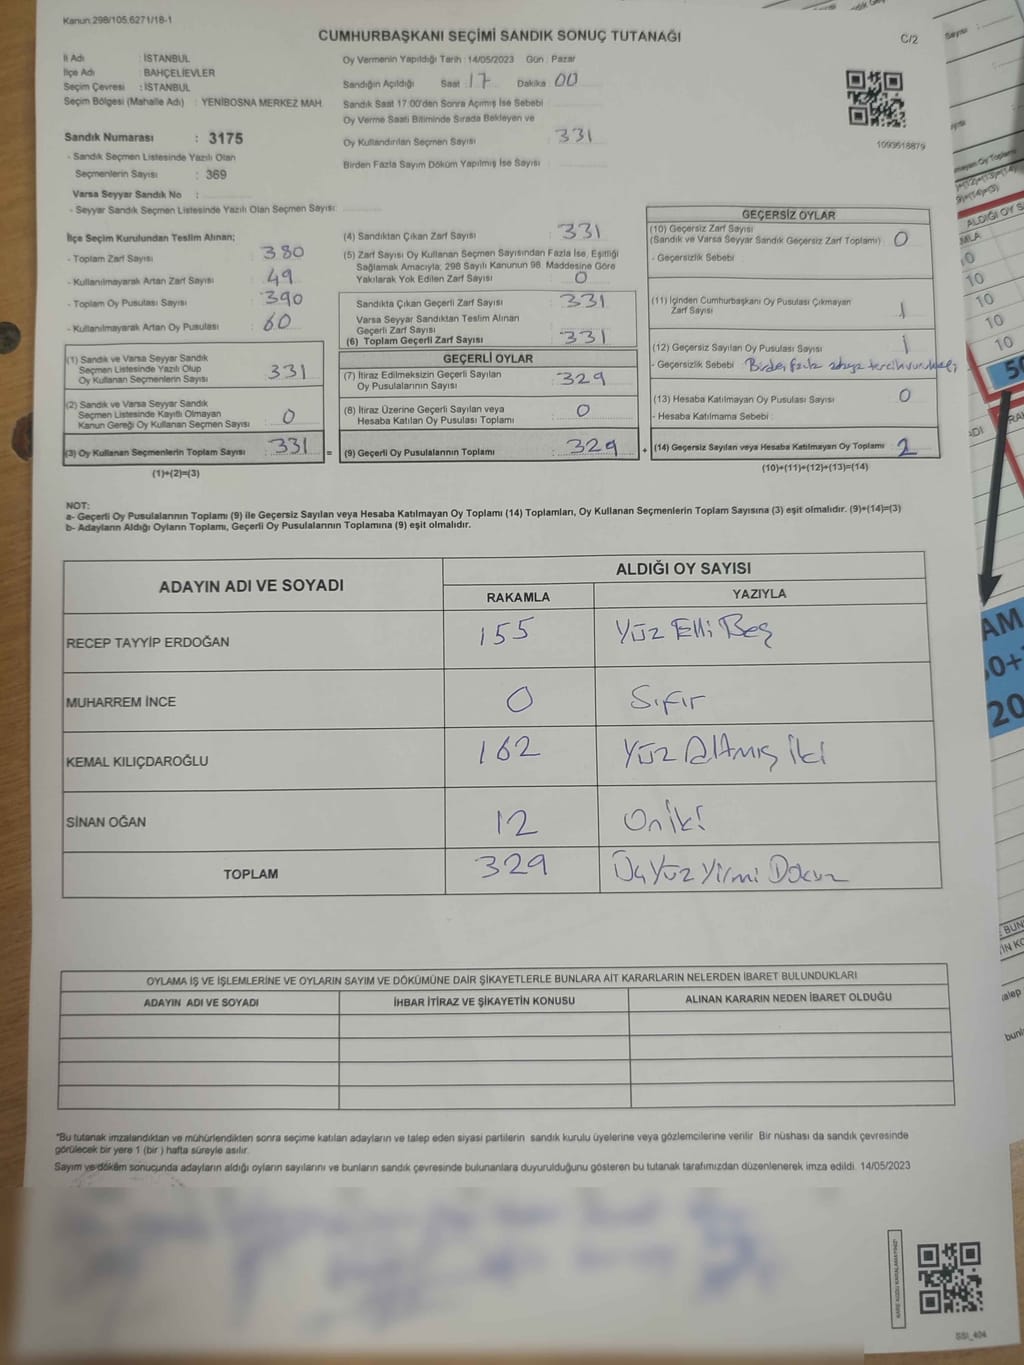 Kanun:298/105,6271/18-1
CUMHURBAŞKANI SEÇİMİ SANDIK SONUÇ TUTANAĞI
C/2
İl Adı : İSTANBUL
İlçe Adı : BAHÇELİEVLER
Seçim Çevresi : İSTANBUL
Seçim Bölgesi (Mahalle Adı) : YENİBOSNA MERKEZ MAH.
Oy Vermenin Yapıldığı Tarih : 14/05/2023 Gün : Pazar
Sandığın Açıldığı Saat : 17 Dakika 00
Sandık Saat 17:00'den Sonra Açılmış İse Sebebi
Oy Verme Saati Bitiminde Sırada Bekleyen ve
Oy Kullandırılan Seçmen Sayısı : 331
Birden Fazla Sayım Döküm Yapılmış İse Sayısı :
1093618879
Sandık Numarası : 3175
- Sandık Seçmen Listesinde Yazılı Olan
Seçmenlerin Sayısı : 369
Varsa Seyyar Sandık No :
- Seyyar Sandık Seçmen Listesinde Yazılı Olan Seçmen Sayısı:
İlçe Seçim Kurulundan Teslim Alınan;
- Toplam Zarf Sayısı : 380
- Kullanılmayarak Artan Zarf Sayısı : 49
- Toplam Oy Pusulası Sayısı : 390
- Kullanılmayarak Artan Oy Pusulası : 60
(1) Sandık ve Varsa Seyyar Sandık
Seçmen Listesinde Yazılı Olup
Oy Kullanan Seçmenlerin Sayısı : 331
(2) Sandık ve Varsa Seyyar Sandık
Seçmen Listesinde Kayıtlı Olmayan
Kanun Gereği Oy Kullanan Seçmen Sayısı : 0
(3) Oy Kullanan Seçmenlerin Toplam Sayısı : 331
(1)+(2)=(3)
=
(4) Sandıktan Çıkan Zarf Sayısı : 331
(5) Zarf Sayısı Oy Kullanan Seçmen Sayısından Fazla İse, Eşitliği
Sağlamak Amacıyla; 298 Sayılı Kanunun 98. Maddesine Göre
Yakılarak Yok Edilen Zarf Sayısı : 0
Sandıkta Çıkan Geçerli Zarf Sayısı : 331
Varsa Seyyar Sandıktan Teslim Alınan
Geçerli Zarf Sayısı
(6) Toplam Geçerli Zarf Sayısı : 331
GEÇERLİ OYLAR
(7) İtiraz Edilmeksizin Geçerli Sayılan
Oy Pusulalarının Sayısı : 329
(8) İtiraz Üzerine Geçerli Sayılan veya
Hesaba Katılan Oy Pusulası Toplamı : 0
(9) Geçerli Oy Pusulalarının Toplamı : 329
+
GEÇERSİZ OYLAR
(10) Geçersiz Zarf Sayısı
(Sandık ve Varsa Seyyar Sandık Geçersiz Zarf Toplamı) : 0
- Geçersizlik Sebebi :
(11) İçinden Cumhurbaşkanı Oy Pusulası Çıkmayan
Zarf Sayısı : 1
(12) Geçersiz Sayılan Oy Pusulası Sayısı : 1
- Geçersizlik Sebebi : Birden fazla
(13) Hesaba Katılmayan Oy Pusulası Sayısı : 0
- Hesaba Katılmama Sebebi :
(14) Geçersiz Sayılan veya Hesaba Katılmayan Oy Toplamı : 2
(10)+(11)+(12)+(13)=(14)
NOT:
a- Geçerli Oy Pusulalarının Toplamı (9) ile Geçersiz Sayılan veya Hesaba Katılmayan Oy Toplamı (14) Toplamları, Oy Kullanan Seçmenlerin Toplam Sayısına (3) eşit olmalıdır. (9)+(14)=(3)
b- Adayların Aldığı Oyların Toplamı, Geçerli Oy Pusulalarının Toplamına (9) eşit olmalıdır.
ADAYIN ADI VE SOYADI ALDIĞI OY SAYISI
RAKAMLA YAZIYLA
RECEP TAYYİP ERDOĞAN 155 Yüz Elli Beş
MUHARREM İNCE 0 Sıfır
KEMAL KILIÇDAROĞLU 162 Yüz Altmış İki
SİNAN OĞAN 12 Oniki
TOPLAM 329 Üç Yüz Yirmi Dokuz
OYLAMA İŞ VE İŞLEMLERİNE VE OYLARIN SAYIM VE DÖKÜMÜNE DAİR ŞİKAYETLERLE BUNLARA AİT KARARLARIN NELERDEN İBARET BULUNDUKLARI
ADAYIN ADI VE SOYADI İHBAR İTİRAZ VE ŞİKAYETİN KONUSU ALINAN KARARIN NEDEN İBARET OLDUĞU
*Bu tutanak imzalandıktan ve mühürlendikten sonra seçime katılan adayların ve talep eden siyasi partilerin sandık kurulu üyelerine veya gözlemcilerine verilir Bir nüshası da sandık çevresinde
görülecek bir yere 1 (bir ) hafta süreyle asılır.
Sayım ve döküm sonucunda adayların aldığı oyların sayılarını ve bunların sandık çevresinde bulunanlara duyurulduğunu gösteren bu tutanak tarafımızdan düzenlenerek imza edildi. 14/05/2023
KARE KODU KARALAMAYINIZ!
SSI_404
ALDIĞI OY S
10
10
10
10
50
AM
20